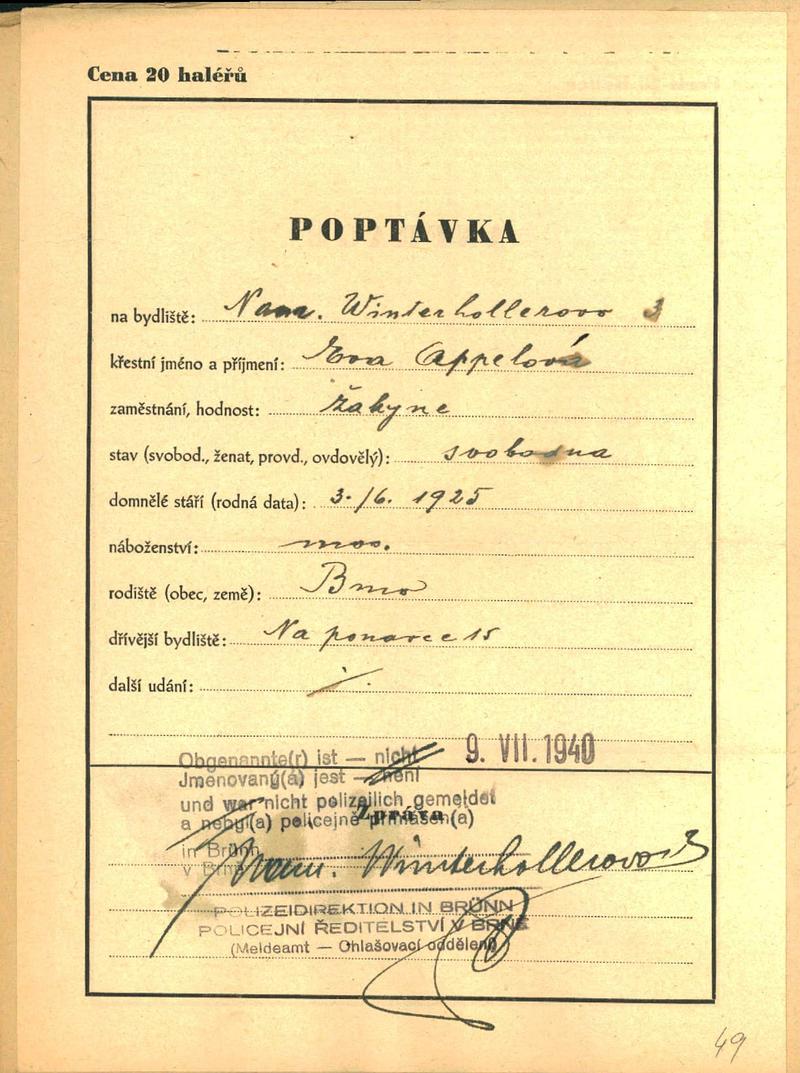 Cena 20 haléřů
POPTÁVKA
na bydliště: Nam. Winterhollerovo 3
křestní jméno a příjmení: Eva Appelová
zaměstnání, hodnost: žákyne
stav (svobod., ženat, provd., ovdovělý): svobodna
domnělé stáří (rodná data): 3./6. 1925
náboženství: mos.
rodiště (obec, země): Brno
dřívější bydliště: Na ponavce 15
další udání: /.
Obgenannte(r) ist — nicht 9. VII. 1940
Jmenovaný(á) jest — není
und war nicht polizeilich gemeldet
Zpráva
a nebyl(a) policejně přihlášen(a)
in Brünn
v Brně
Nam. Winterhollerovo 3
POLIZEIDIREKTION IN BRÜNN
POLICEJNÍ ŘEDITELSTVÍ V BRNĚ
(Meldeamt — Ohlašovací oddělení)
49